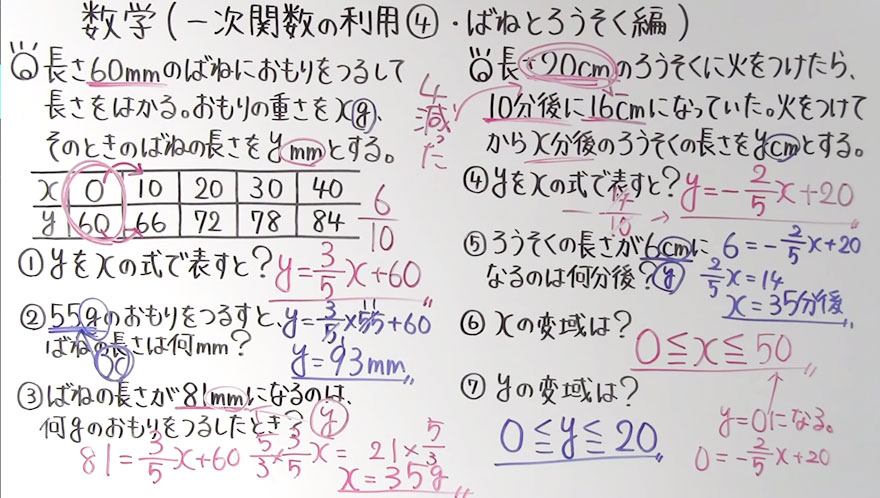 数学(一次関数の利用④・ばねとろうそく編)
長さ60mmのばねにおもりをつるして
長さをはかる。おもりの重さをx(g)、
そのときのばねの長さをymmとする。
x 0 10 20 30 40
y 60 66 72 78 84
6/10
①yをxの式で表すと? y=3/5x+60
②55gのおもりをつるすと、y=3/5×55+60
11
1
ばねの長さは何mm?
(x)
y=93mm
③ばねの長さが81mmになるのは、
何gのおもりをつるしたとき? (y)
81=3/5x+60 5/3×3/5x=21×5/3
x=35g
長さ20cmのろうそくに火をつけたら、
10分後に16cmになっていた。火をつけて
からx分後のろうそくの長さをycmとする。
4減った
④yをxの式で表すと? y=-2/5x+20
-4/10 →
⑤ろうそくの長さが6cmに 6=-2/5x+20
なるのは何分後? (y) 2/5x=14
x=35分後
⑥xの変域は?
0≦x≦50
⑦yの変域は?
0≦y≦20
y=0になる。
0=-2/5x+20